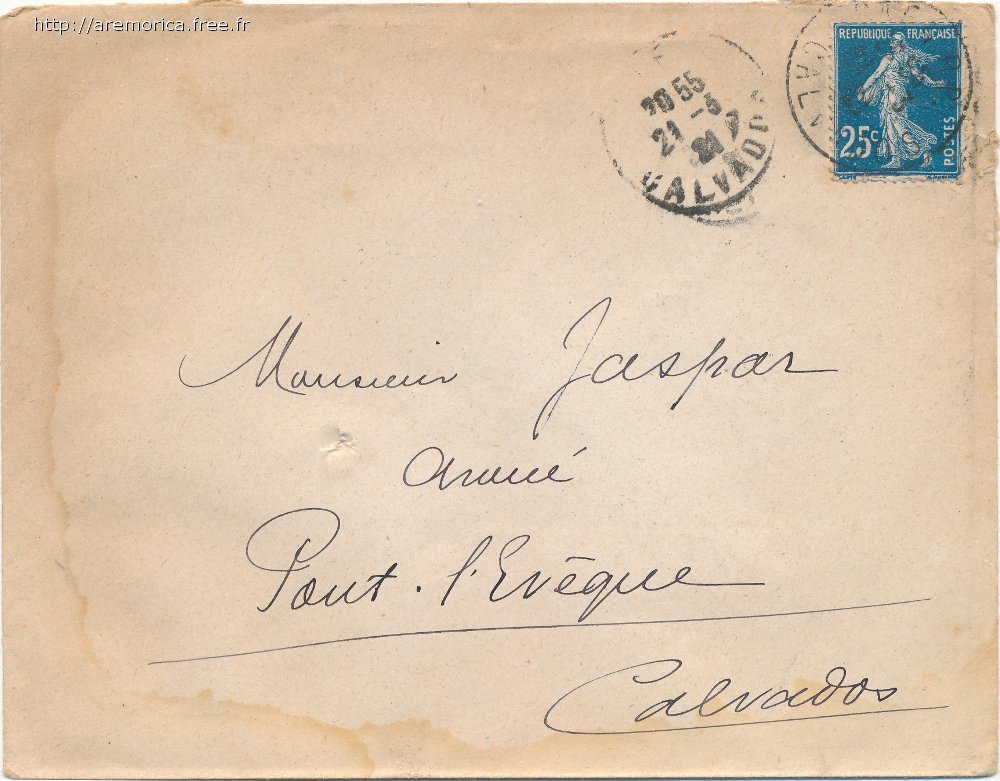 http://aremorica.free.fr
REPUBLIQUE FRANÇAISE
25c
POSTES
20 55
21 -5
CALVADOS
CALV
Monsieur Jaspar
avoué
Pont-l'Evêque
Calvados